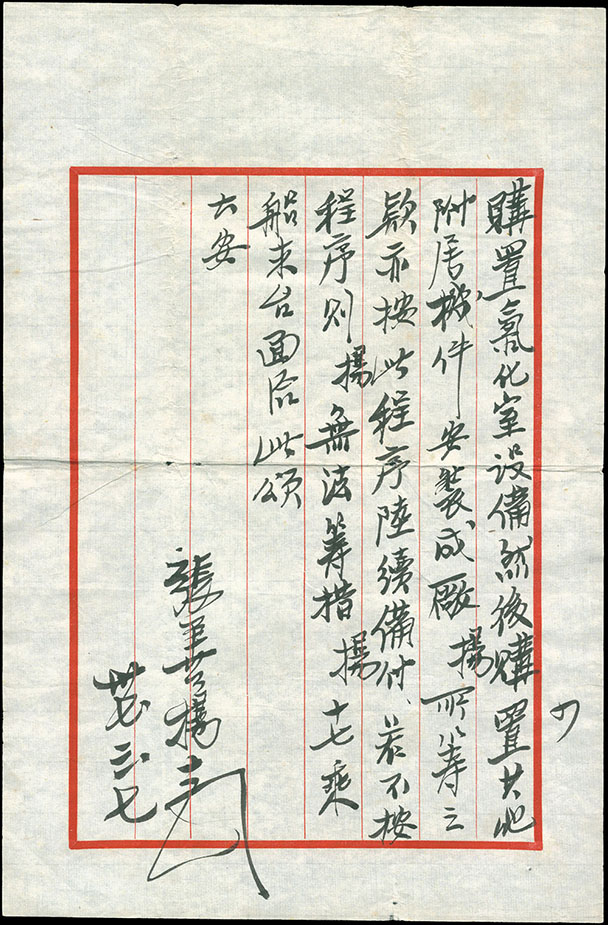 購置氯化室設備然後購置其他
附屬機件安裝成廠揚所籌之
款亦按此程序陸續備付、若不按
程序則揚無法籌措揚十七乘
船來台面洽此頌
大安
張善揚
卅七、二、七